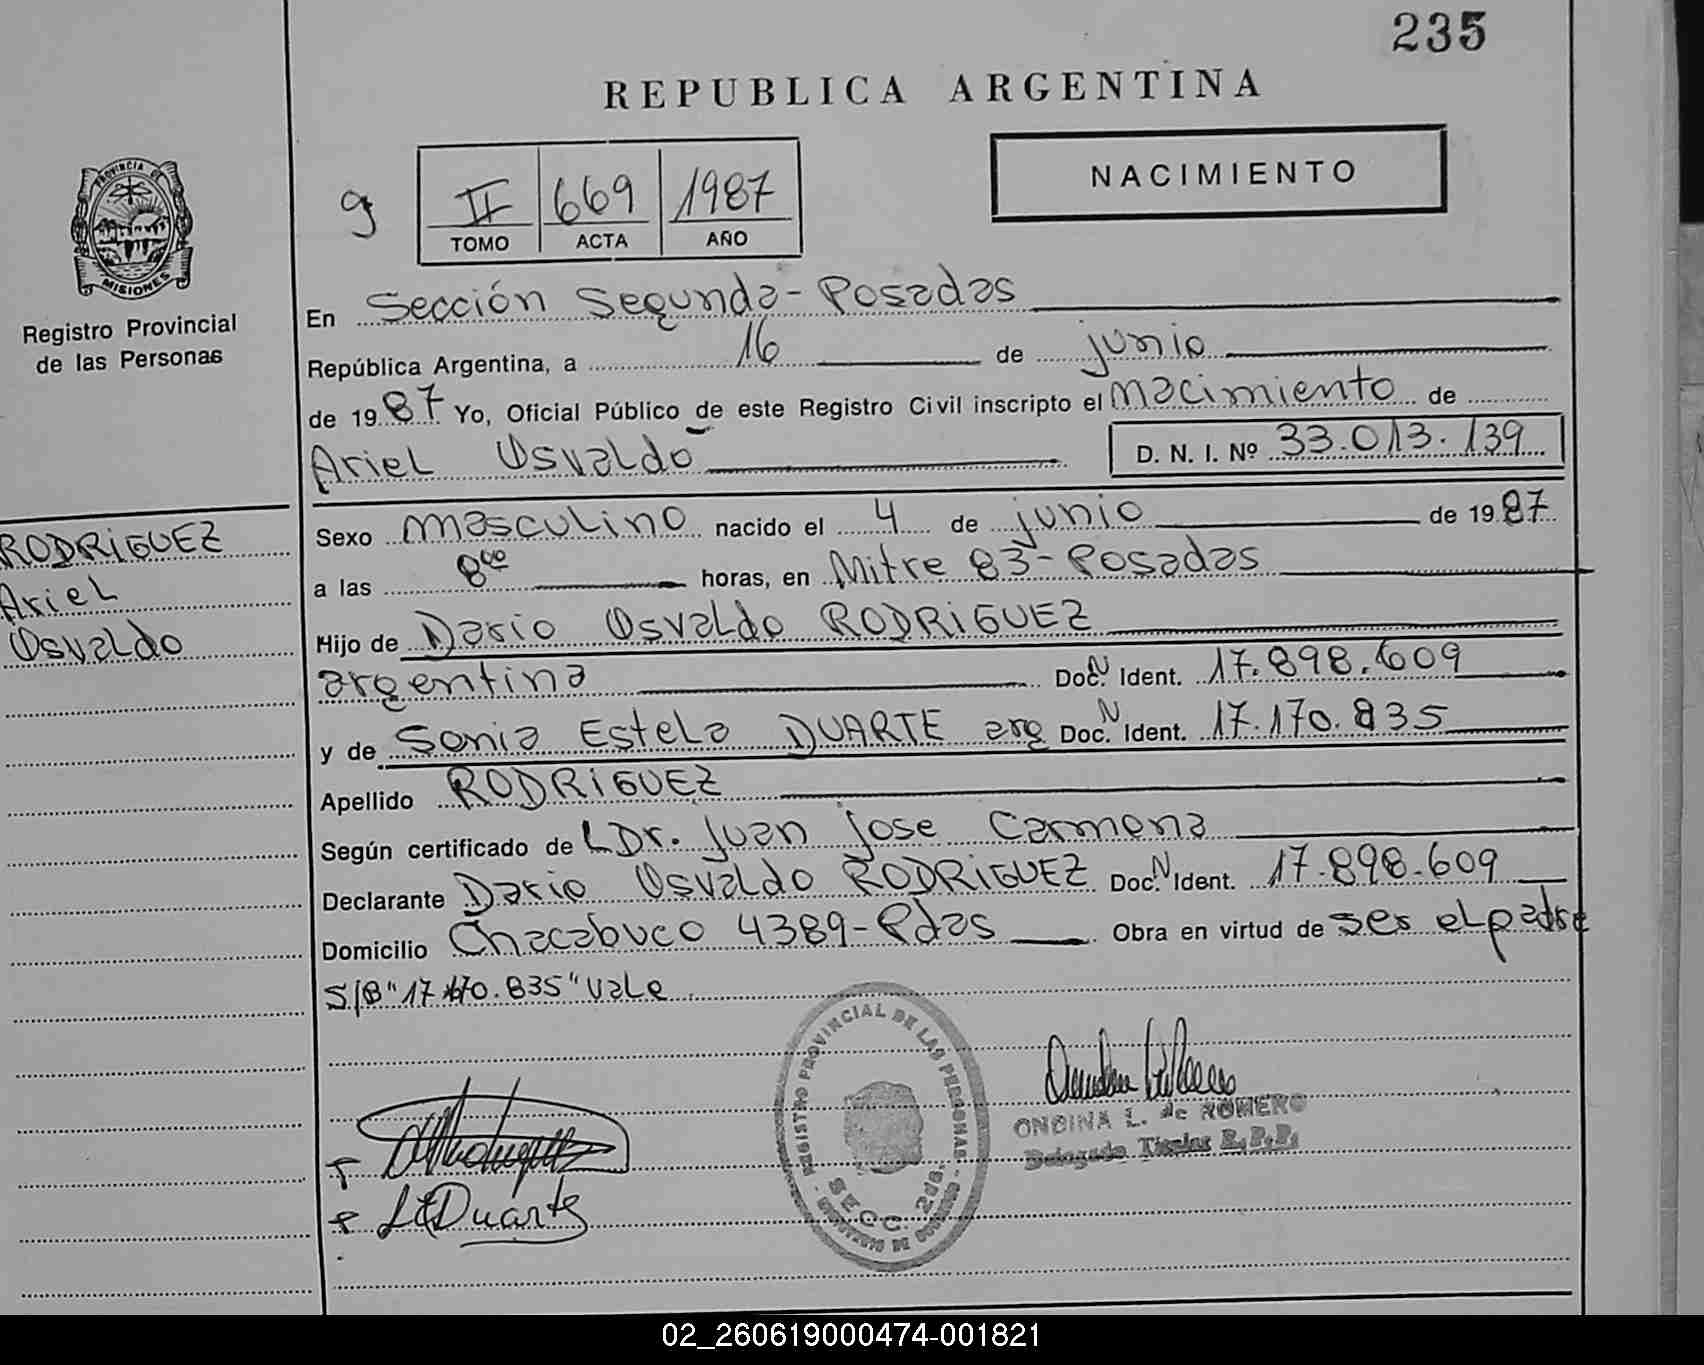 235
REPUBLICA ARGENTINA
NACIMIENTO
g
II 669 1987
TOMO ACTA AÑO
PROVINCIA DE
MISIONES
Registro Provincial
de las Personas
En Sección Segunda - Posadas
República Argentina, a 16 de junio
de 1987 Yo, Oficial Público de este Registro Civil inscripto el nacimiento de
Ariel Osvaldo D. N. I. Nº 33.013.139
RODRIGUEZ
Ariel
Osvaldo
Sexo masculino nacido el 4 de junio de 1987
a las 8⁰⁰ horas, en Mitre 83 - Posadas
Hijo de Dario Osvaldo RODRIGUEZ
argentina Doc. N Ident. 17.898.609
y de Sonia Estela DUARTE arg Doc. N Ident. 17.170.835
Apellido RODRIGUEZ
Según certificado de L Dr. Juan Jose Carmona
Declarante Dario Osvaldo RODRIGUEZ Doc. N Ident. 17.898.609
Domicilio Chacabuco 4389 - Pdas Obra en virtud de ser el padre
S/B "17.170.835" Vale
REGISTRO PROVINCIAL DE LAS PERSONAS
SECC. 2da.
ONDINA L. de ROMERO
Delegada Titular R.P.P.
LEDuarte
02_260619000474-001821